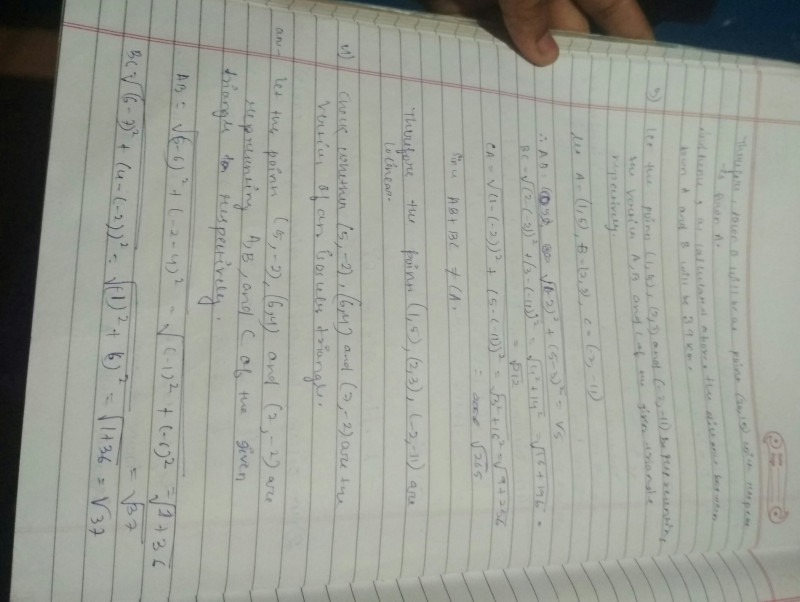 Therefore, town B will be at point (36,15) with respect
to town A.
distance
as calculated above the distance between
town A and B will be 39 km.
3) Let the points (1,5), (2,3) and (-2,-11) be representing
the vertices A, B and C of the given triangle
respectively
Let A = (1,5), B = (2,3), C = (-2,-11)
∴ AB = √(1-2)² + (5-3)² = √5
BC = √(2-(-2))² + (3-(-11))² = √4² + 14² = √16 + 196 =
= √212
CA = √(1-(-2))² + (5-(-11))² = √3² + 16² = √9 + 256
= √265
Since AB + BC ≠ CA.
Therefore the points (1,5), (2,3), (-2,-11) are
4) Check whether (5,-2), (6,4) and (7,-2) are the
vertices of an isosceles triangle.
ans- let the points (5,-2), (6,4) and (7,-2) are
representing A, B, and C of the given
triangle respectively.
AB = √(5-6)² + (-2-4)² = √(-1)² + (-6)² = √1 + 36
= √37
BC = √(6-7)² + (4-(-2))² = √(1)² + (6)² = √1+36 = √37